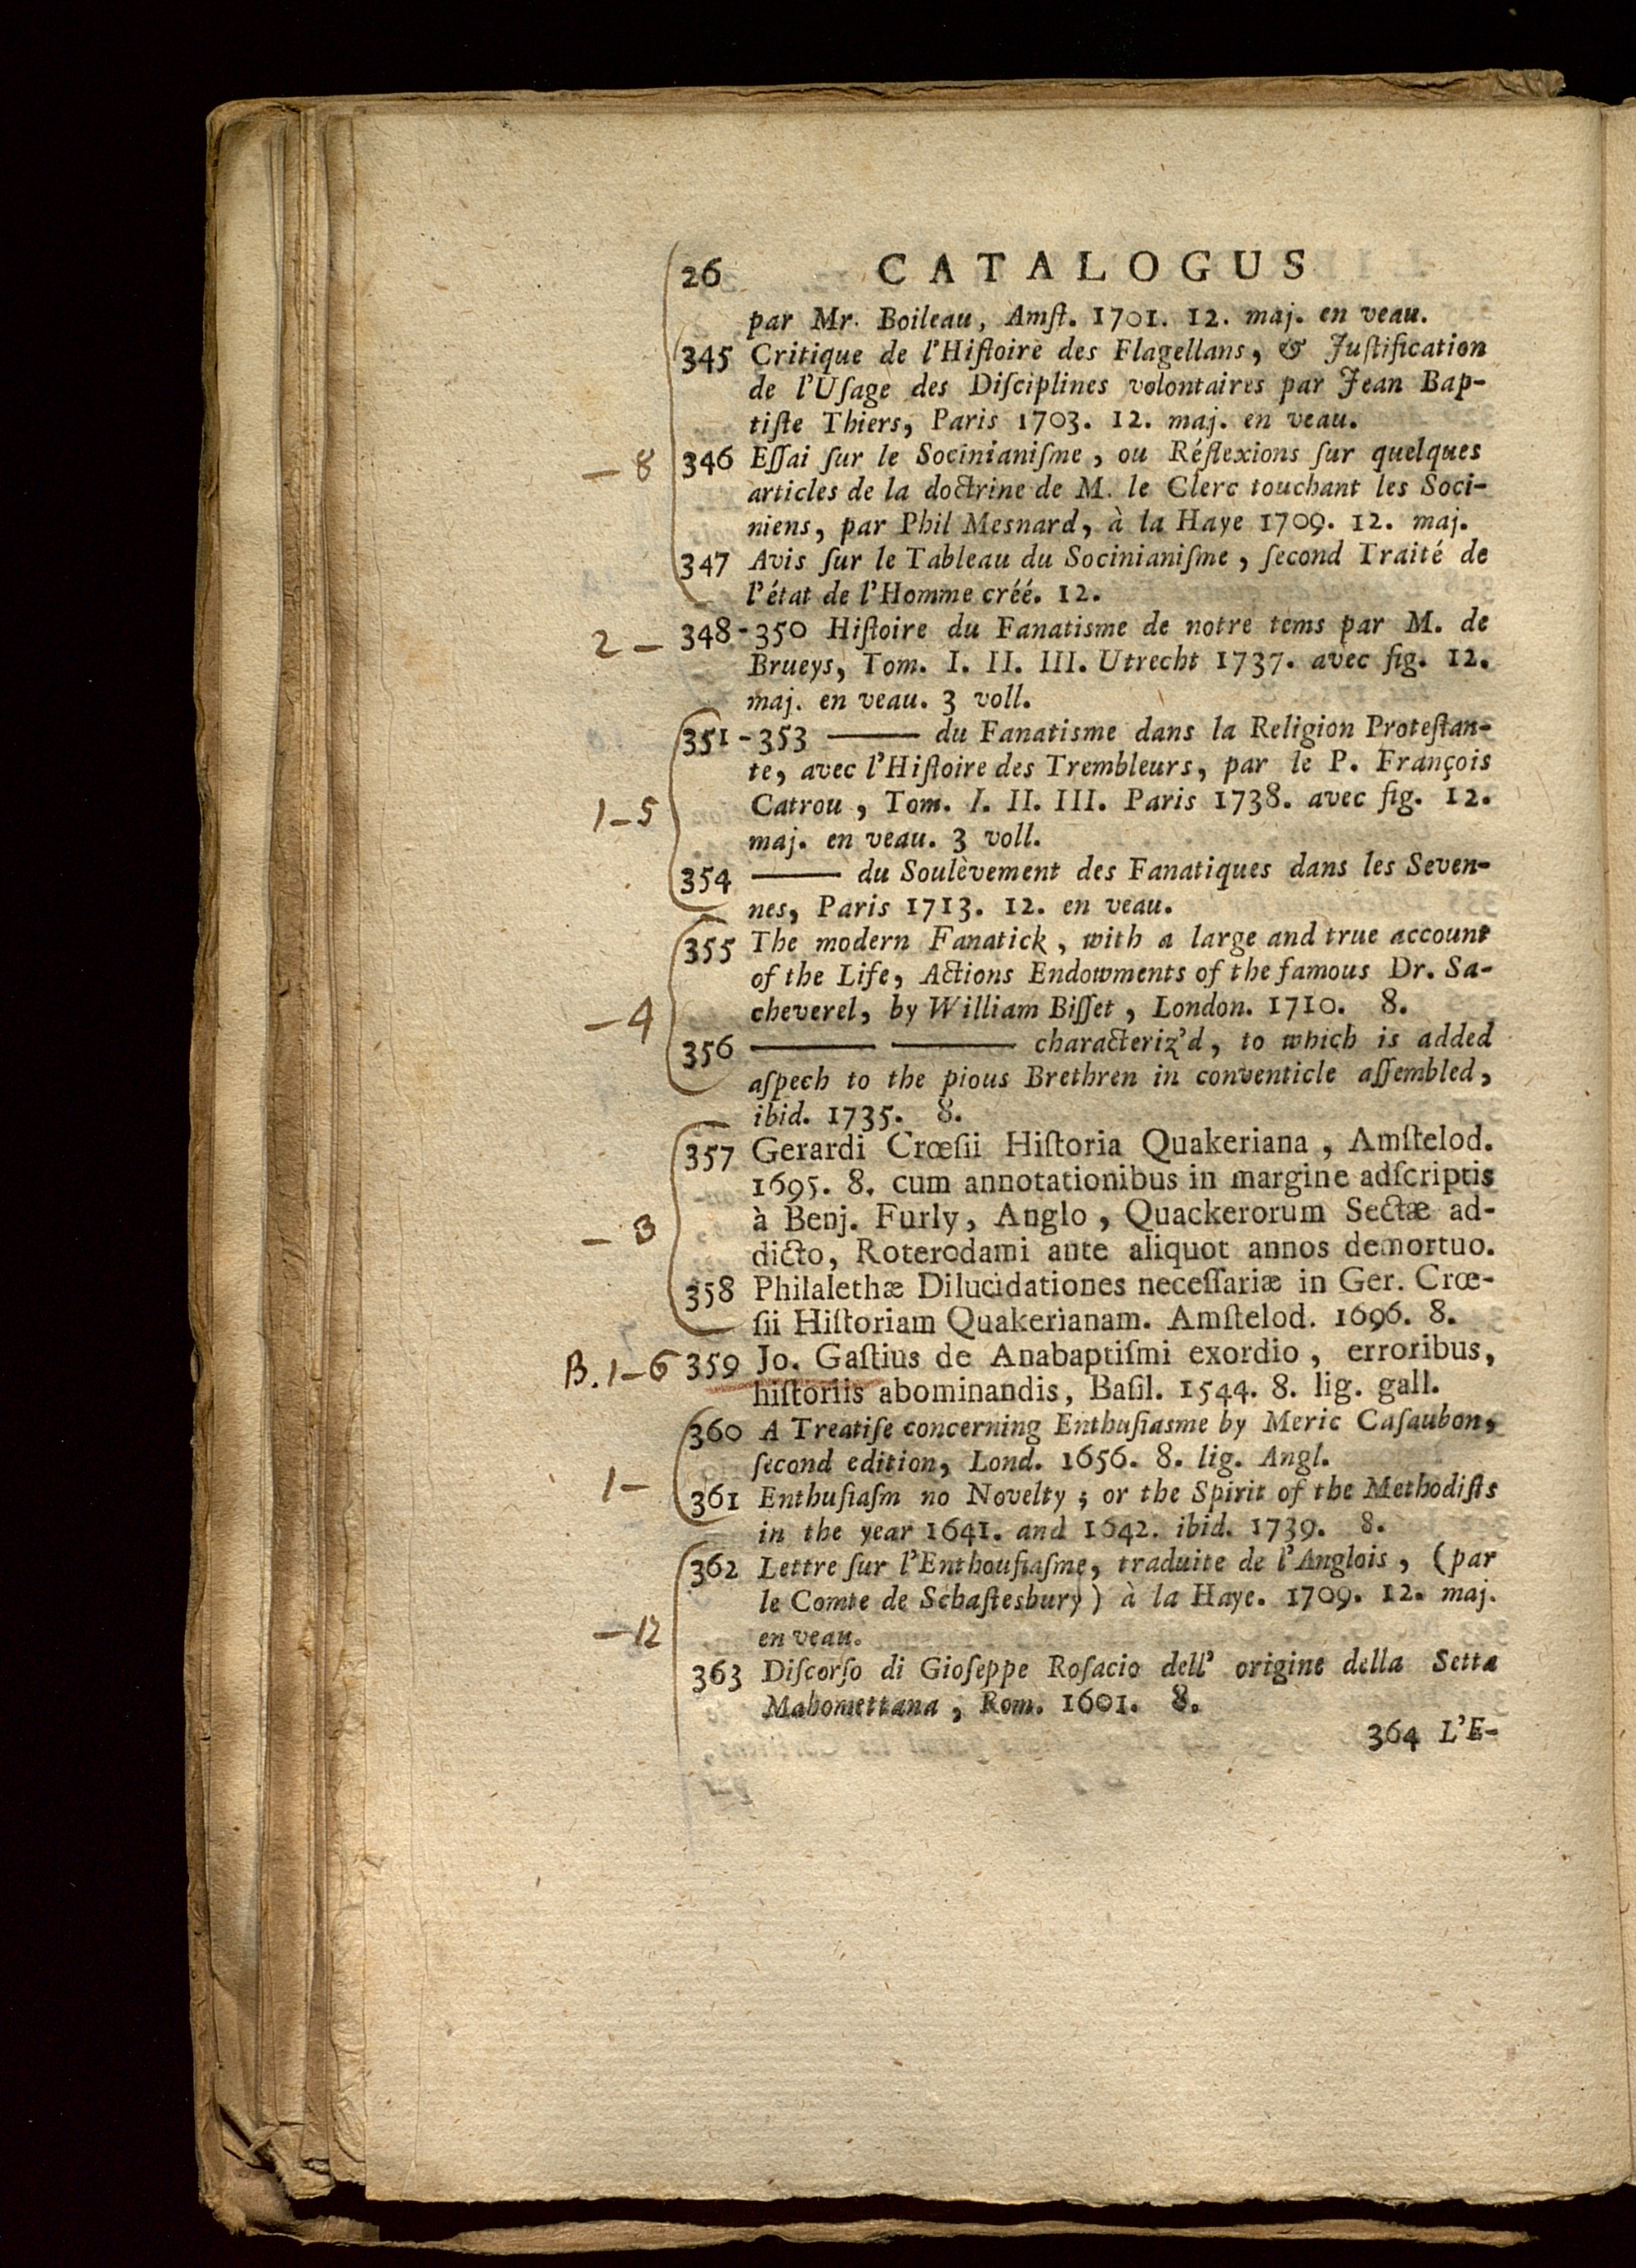 26 CATALOGUS
par Mr. Boileau, Amſt. 1701. 12. maj. en veau.
345 Critique de l'Hiſtoire des Flagellans, & Juſtification
de l'Uſage des Diſciplines volontaires par Jean Bap-
tiſte Thiers, Paris 1703. 12. maj. en veau.
— 8 346 Eſſai ſur le Socinianiſme, ou Réflexions ſur quelques
articles de la doctrine de M. le Clerc touchant les Soci-
niens, par Phil Mesnard, à la Haye 1709. 12. maj.
347 Avis ſur le Tableau du Socinianiſme, ſecond Traité de
l'état de l'Homme créé. 12.
2 — 348-350 Hiſtoire du Fanatisme de notre tems par M. de
Brueys, Tom. I. II. III. Utrecht 1737. avec fig. 12.
maj. en veau. 3 voll.
351-353 —— du Fanatisme dans la Religion Proteſtan-
te, avec l'Hiſtoire des Trembleurs, par le P. François
1-5 Catrou, Tom. I. II. III. Paris 1738. avec fig. 12.
maj. en veau. 3 voll.
354 —— du Soulèvement des Fanatiques dans les Seven-
nes, Paris 1713. 12. en veau.
355 The modern Fanatick, with a large and true account
of the Life, Actions Endowments of the famous Dr. Sa-
— 4 cheverel, by William Biſſet, London. 1710. 8.
356 —— —— characteriz'd, to which is added
aſpech to the pious Brethren in conventicle aſſembled,
ibid. 1735. 8.
357 Gerardi Crœſii Hiſtoria Quakeriana, Amſtelod.
1695. 8. cum annotationibus in margine adſcriptis
— 3 à Benj. Furly, Anglo, Quackerorum Sectæ ad-
dicto, Roterodami ante aliquot annos demortuo.
358 Philalethæ Dilucidationes neceſſariæ in Ger. Crœ-
ſii Hiſtoriam Quakerianam. Amſtelod. 1696. 8.
B. 1-6 359 Jo. Gaſtius de Anabaptiſmi exordio, erroribus,
hiſtoriis abominandis, Baſil. 1544. 8. lig. gall.
360 A Treatiſe concerning Enthuſiasme by Meric Caſaubon,
ſecond edition, Lond. 1656. 8. lig. Angl.
1 — 361 Enthuſiaſm no Novelty; or the Spirit of the Methodiſts
in the year 1641. and 1642. ibid. 1739. 8.
362 Lettre ſur l'Enthouſiaſme, traduite de l'Anglois, (par
le Comte de Schaftesbury) à la Haye. 1709. 12. maj.
— 12 en veau.
363 Diſcorſo di Gioſeppe Roſacio dell' origine della Setta
Mahomettana, Rom. 1601. 8.
364 L'E-